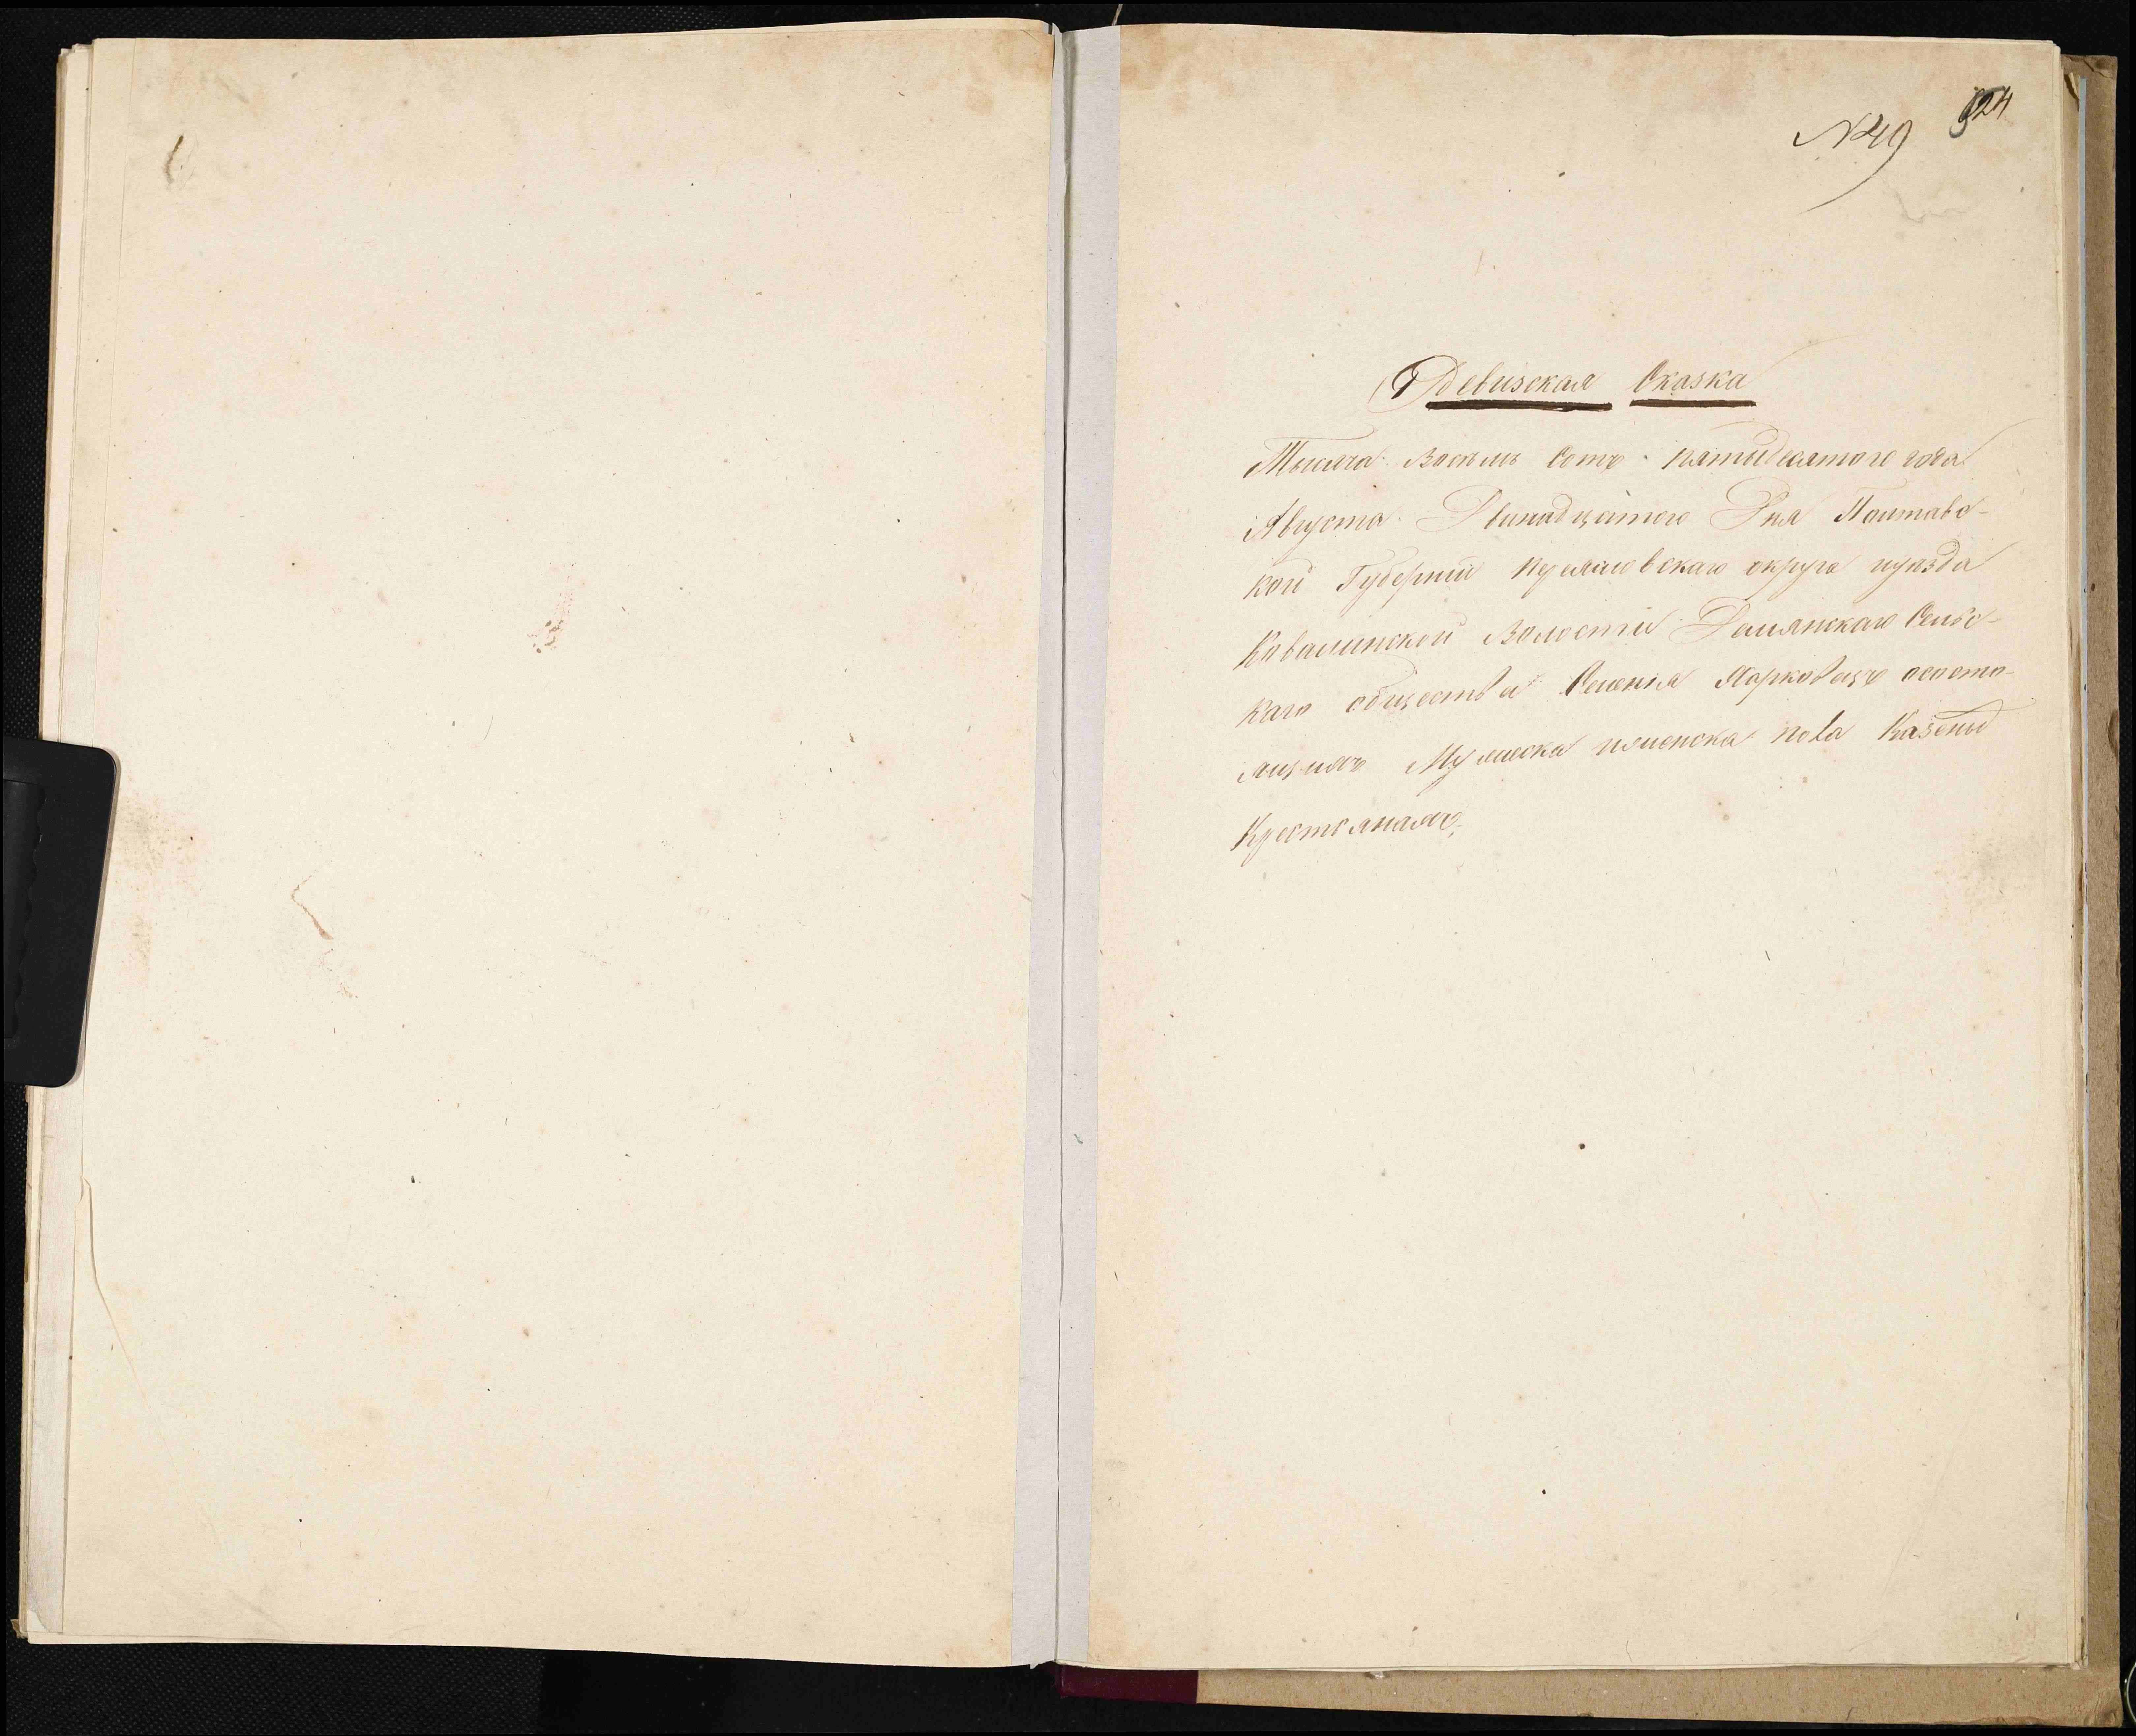 №49
524
Ревизская Сказка
Тысяча Восемь Сотъ пятидесятого года
Августа Двинадцатого Дня Полтавс-
кой Губерніи Переяславскаго округа иуѣзда
Ковалинской Волости Демянскаго Сельс-
каго общества Селенія Харковець осостo-
ящихъ Мужеска иженска пола Казеныхъ
Крестьянахъ,